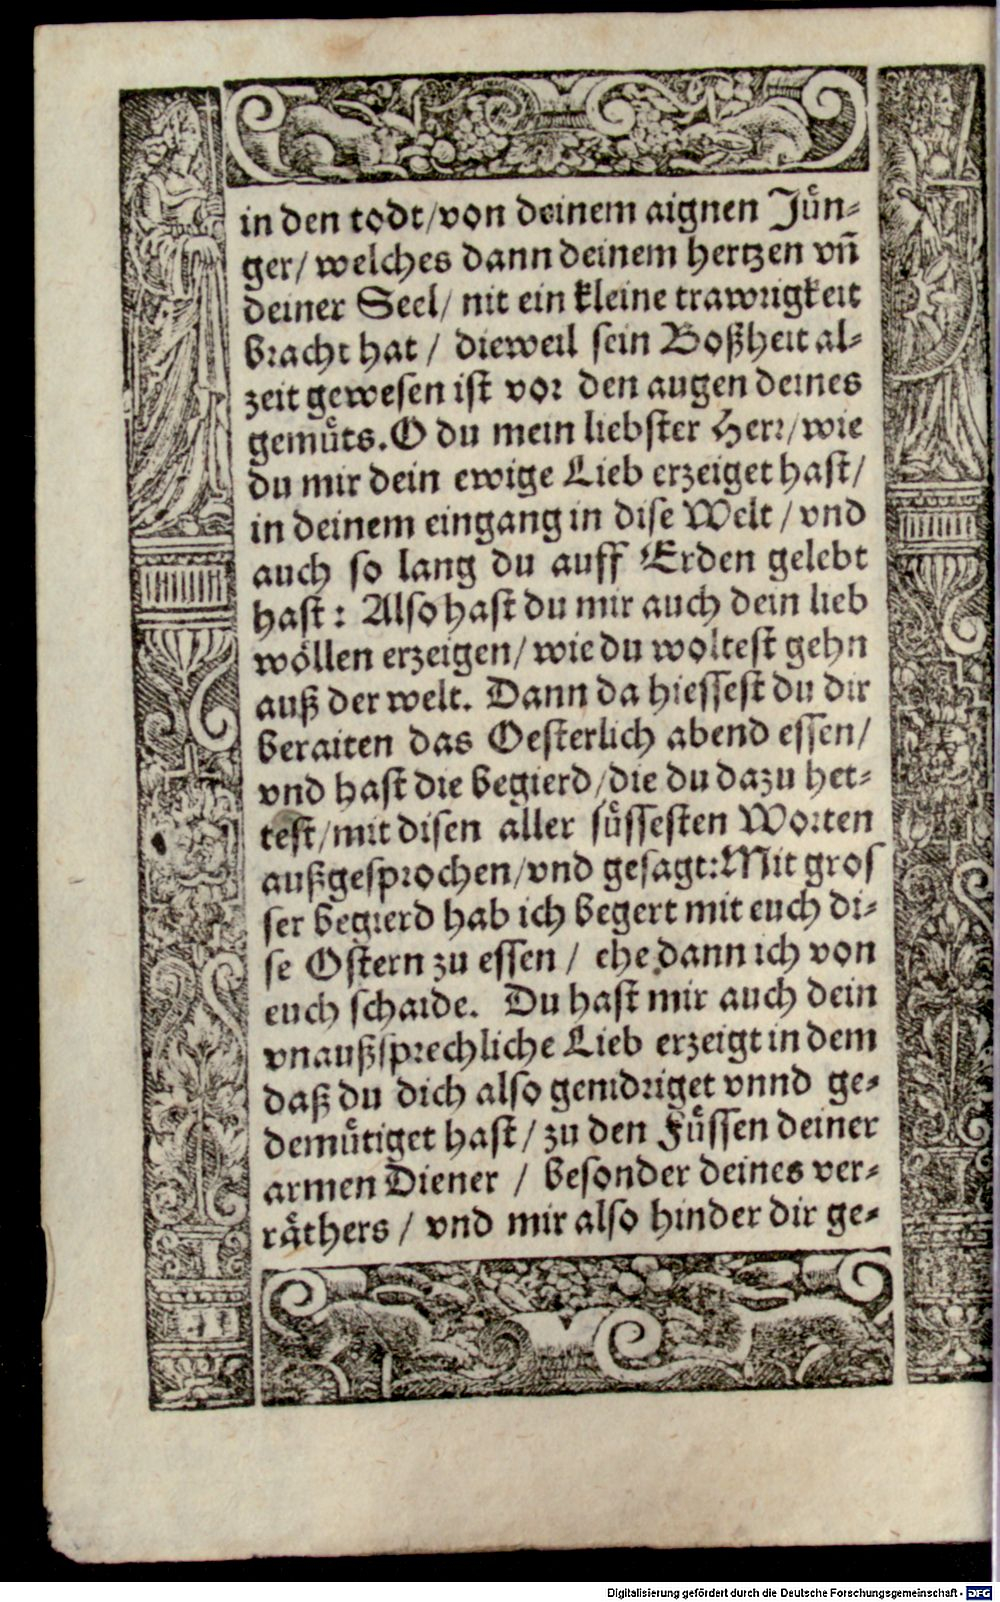 in den todt/von deinem aignen Jüͤn-
ger/ welches dann deinem hertzen vn̄
deiner Seel/ nit ein kleine trawrigkeit
bracht hat / dieweil sein Boßheit al-
zeit gewesen ist vor den augen deines
gemuͤts. O du mein liebster Herr/wie
du mir dein ewige Lieb erzeiget hast/
in deinem eingang in dise Welt / vnd
auch so lang du auff Erden gelebt
hast: Also hast du mir auch dein lieb
woͤllen erzeigen/ wie du woltest gehn
auß der welt. Dann da hiessest du dir
beraiten das Oesterlich abend essen/
vnd hast die begierd/die du dazu het-
test/mit disen aller suͤssesten Worten
außgesprochen/vnd gesagt: Mit gros
ser begierd hab ich begert mit euch di-
se Ostern zu essen / ehe dann ich von
euch schaide. Du hast mir auch dein
vnaußsprechliche Lieb erzeigt in dem
daß du dich also genidriget vnnd ge-
demuͤtiget hast / zu den Fuͤssen deiner
armen Diener / besonder deines ver-
raͤthers / vnd mir also hinder dir ge-
Digitalisierung gefördert durch die Deutsche Forschungsgemeinschaft - DFG